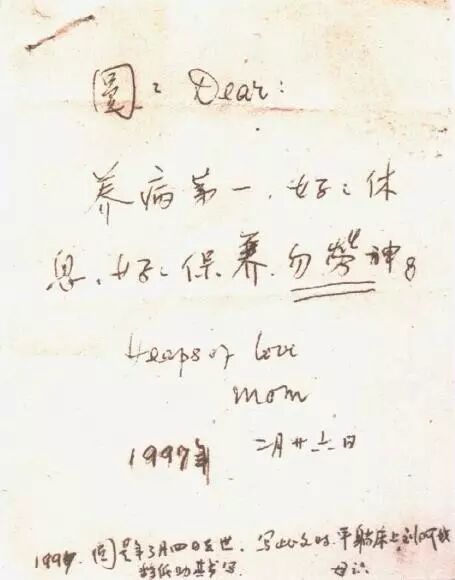 圓〻 Dear:
养病第一,好〻休
息,好〻保养,勿勞神。
Heaps of love
mom
1997年 二月廿六日
1997. 圆是年3月四日去世. 写此文时. 平躺床上,刘阿姨
助其书写. 母识